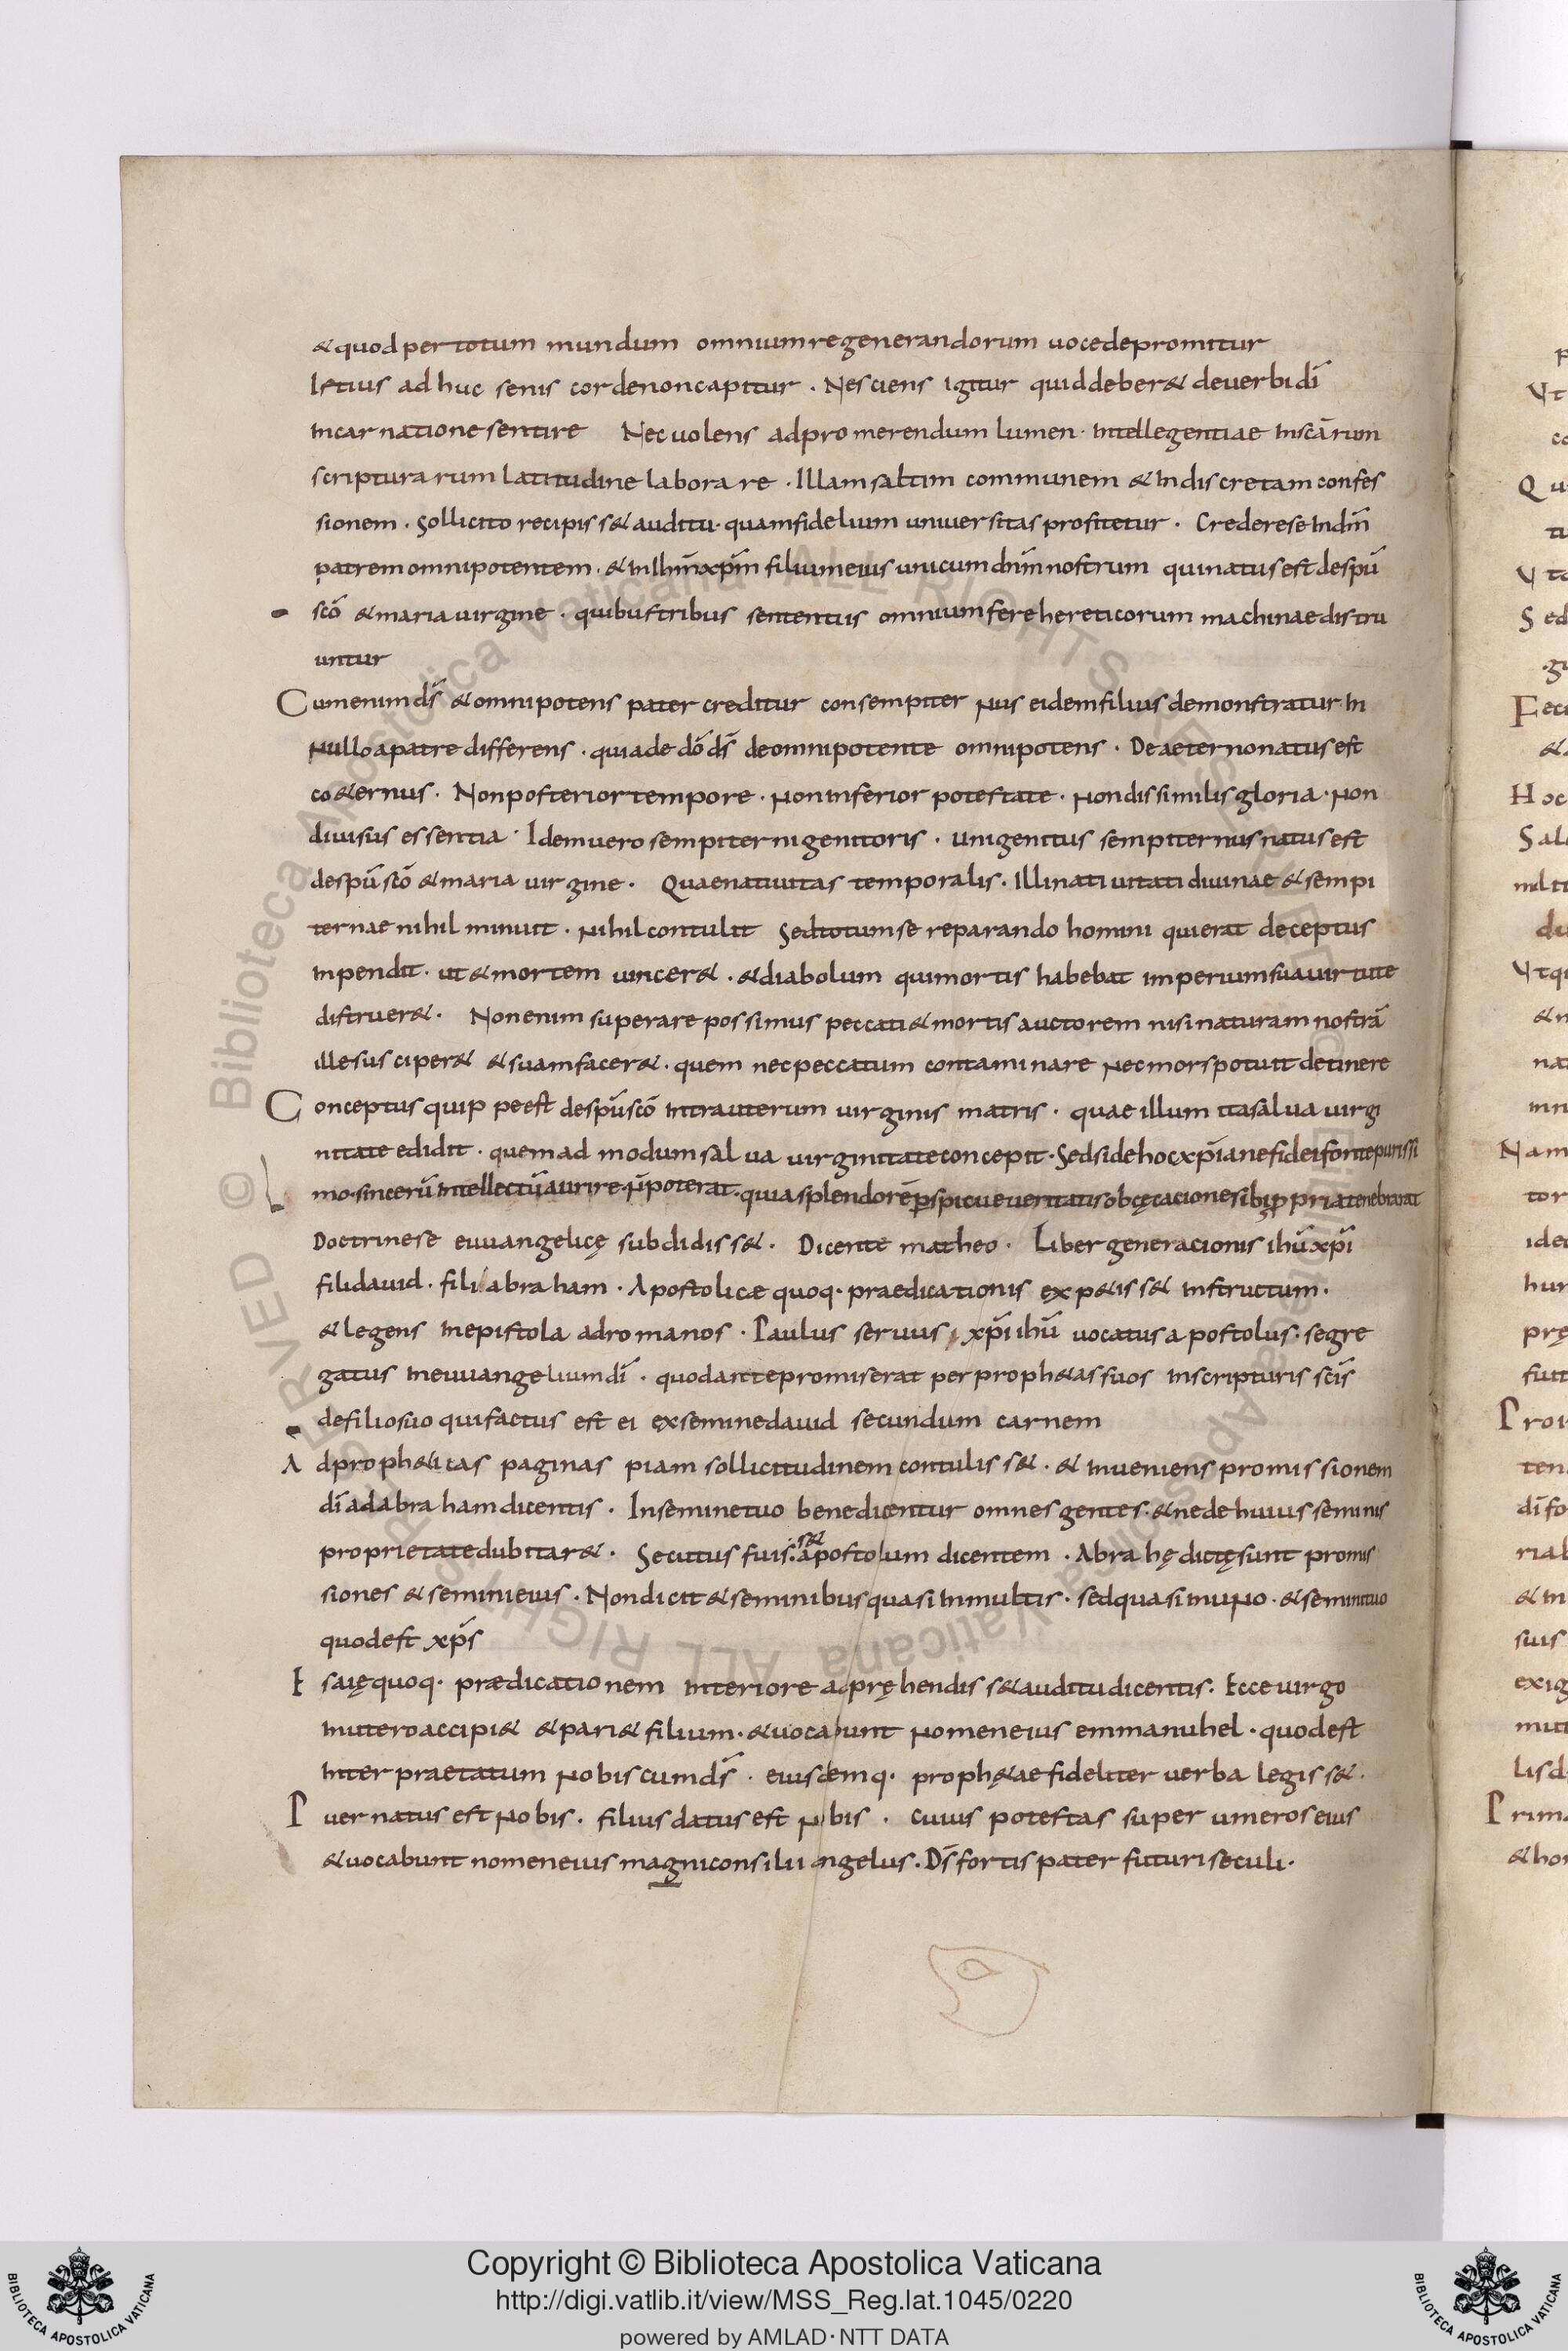 & quod per totum mundum omnium regenerandorum uoce depromitur
l&tius ad huc senis corde non capitur . Nesciens igitur quid deber& de uerbi dī
incarnatione sentire Nec uolens ad promerendum lumen · intellegentiae in scārum
scripturarum latitudine laborare . Illam saltim communem & indiscretam confes
sionem . Sollicito recipiss& auditu · quam fidelium uniuersitas profitetur . Credere se in dm̄
patrem omnipotentem . & in ihm̄ xp̄m filium eius unicum dn̄m nostrum qui natus est de spū
scō & maria uirgine . quibus tribus sententiis omnium fere hereticorum machinae distru
untur
Cum enim ds̄ & omnipotens pater creditur consempiternus eidem filius demonstratur · In
nullo a patre differens . quia de dō ds̄ de omnipotente omnipotens . De aeterno natus est
co&ernus . Non posterior tempore . non inferior potestate . non dissimilis gloria . non
diuisus essentia . Idem uero sempiterni genitoris . unigenitus sempiternus natus est
de spū scō & maria uirgine . Quae natiuitas temporalis . Illi natiuitati diuinae & sempi
ternae nihil minuit . nihil contulit Sed totum se reparando homini qui erat deceptus
inpendit . ut & mortem uincer& . & diabolum qui mortis habebat imperium sua uirtute
distruer& . Non enim superare possimus peccati & mortis auctorem nisi naturam nostrā
ille suscipier& & suam facer& . quem nec peccatum contaminare nec mors potuit detinere
Conceptus quippe est de spū scō intra uterum uirginis matris . quae illum ita salua uirgi
nitate edidit . quem ad modum salua uirginitate concepit . Sed si de hoc xp̄iane fidei fonte purissi
mo · sincerū intellectū aurire · n̄ poterat . quia splendorē p̲spicue ueritatis obcęcacione sibi ꝓpria tenebrarat
Doctrine se euuangelicę subdidiss& . Dicente matheo . Liber generacionis ihū xp̄i
fili dauid . fili abraham . Apostolicæ quoq· praedicationis exp&iss& instructum .
& legens in epistola ad romanos . Paulus seruus xp̄i ihū uocatus apostolus · segre
gatus in euuangelium dī . quod ante promiserat per proph&as suos in scripturis scīs
de filio suo qui factus est ei ex semine dauid secundum carnem
Ad proph&icas paginas piam sollicitudinem contuliss& . & inueniens promissionem
dī ad abraham dicentis . In semine tuo benedicentur omnes gentes . & ne de huius seminis
proprietate dubitar& . Secutus fuis·s& apostolum dicentem . Abrahę dictę sunt promis
siones & semini eius . Non dicit & seminibus quasi in multis . sed quasi in uno . & semini tuo
quod est xp̄s
Esaię quoq· prædicationem interiore adpręhendiss& auditu dicentis . Ecce uirgo
in utero accipi& & pari& filium . & uocabunt nomen eius emmanuhel . quod est
interpraetatum nobiscum ds̄ . eiusdemq· proph&ae fideliter uerba legiss& .
Puer natus est nobis . filius datus est nobis . cuius potestas super umeros eius
& uocabunt nomen eius magni consilii angelus . Ds̄ fortis pater futuri seculi .
Copyright © Biblioteca Apostolica Vaticana
http://digi.vatlib.it/view/MSS_Reg.lat.1045/0220
powered by AMLAD·NTT DATA